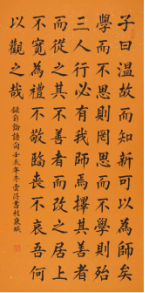 子曰温故而知新可以為師矣
學而不思則罔思而不學則殆
三人行必有我師焉擇其善者
而從之其不善者而改之居上
不寬為禮不敬臨喪不哀吾何
以觀之哉